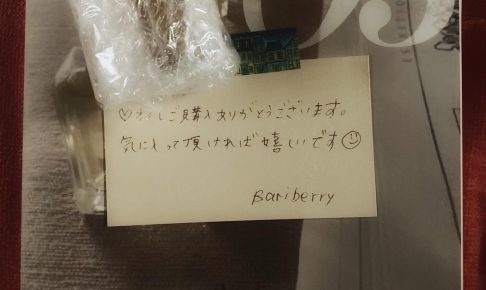 ご購入ありがとうございます。
気に入って頂ければ嬉しいです
Bariberry